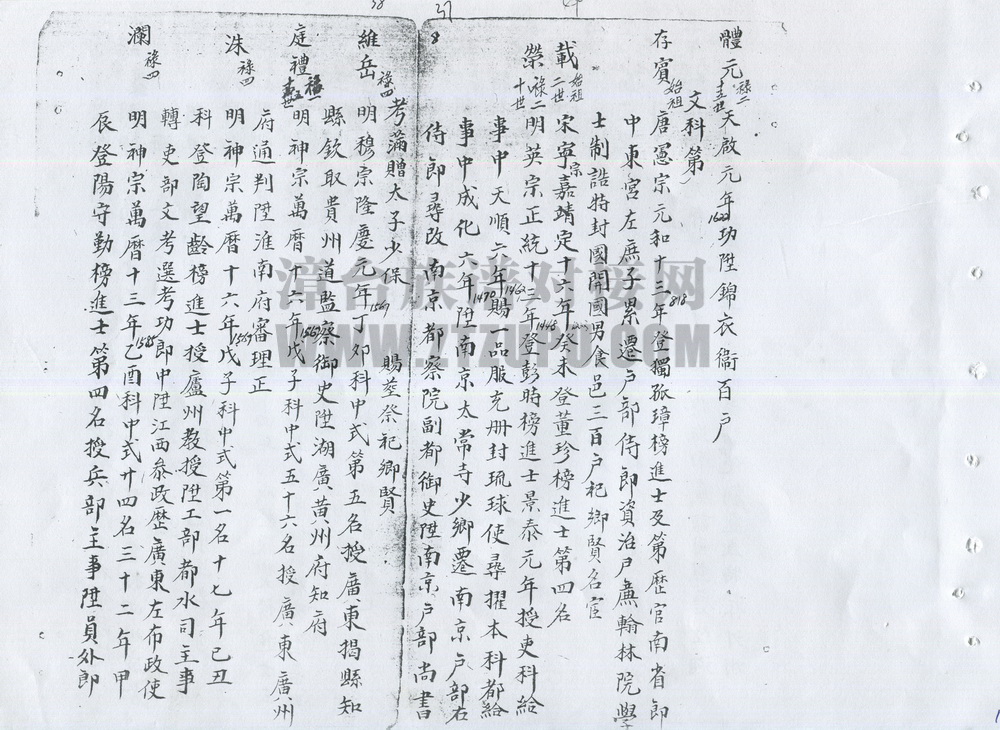 體元 祿二十五世 天啟元年1621功陞錦衣衞百戶
文科第
存賓 始祖 唐憲宗元和十三年818登獨孤璋榜進士及第歷官南省郎
中東宮左庶子累遷戶部侍郎資治尸廉翰林院學
士制誥特封國開國男食邑三百戶祀鄉賢名宦
載 始祖二世 宋寧宗嘉靖定十六年癸未登董珍榜進士第四名
榮 祿二十世 明英宗正統十三年1448登彭時榜進士景泰元年授吏科給
事中天順六年1462賜一品服充册封琉球使尋擢本科都給
事中成化六年1470陞南京太常寺少卿遷南京戶部右
侍郎尋改南京都察院副都御史陞南京戶部尚書
考滿贈太子少保 賜塋祭祀鄉賢
維岳 祿四 明穆宗隆慶元年1567丁卯科中式第五名授廣東揭縣知
縣欽取貴州道監察御史陞湖廣黃州府知府
庭禮 祿一十五世 明神宗萬曆十六年戊子科中式五十六名授廣東廣州
府通判陞淮南府審理正
洙 祿四 明神宗萬曆十六年戊子科中式第一名十七年已丑
科登陶望齡榜進士授廬州教授陞工部都水司主事
轉吏部文考選考功郎中陞江西叅政歷廣東左布政使
瀾 祿四 明神宗萬曆十三年1585乙酉科中式廿四名三十二年甲
辰登陽守勤榜進士第四名授兵部主事陞員外郎
漳台族谱对接网
WWW.ZTZUPU.COM